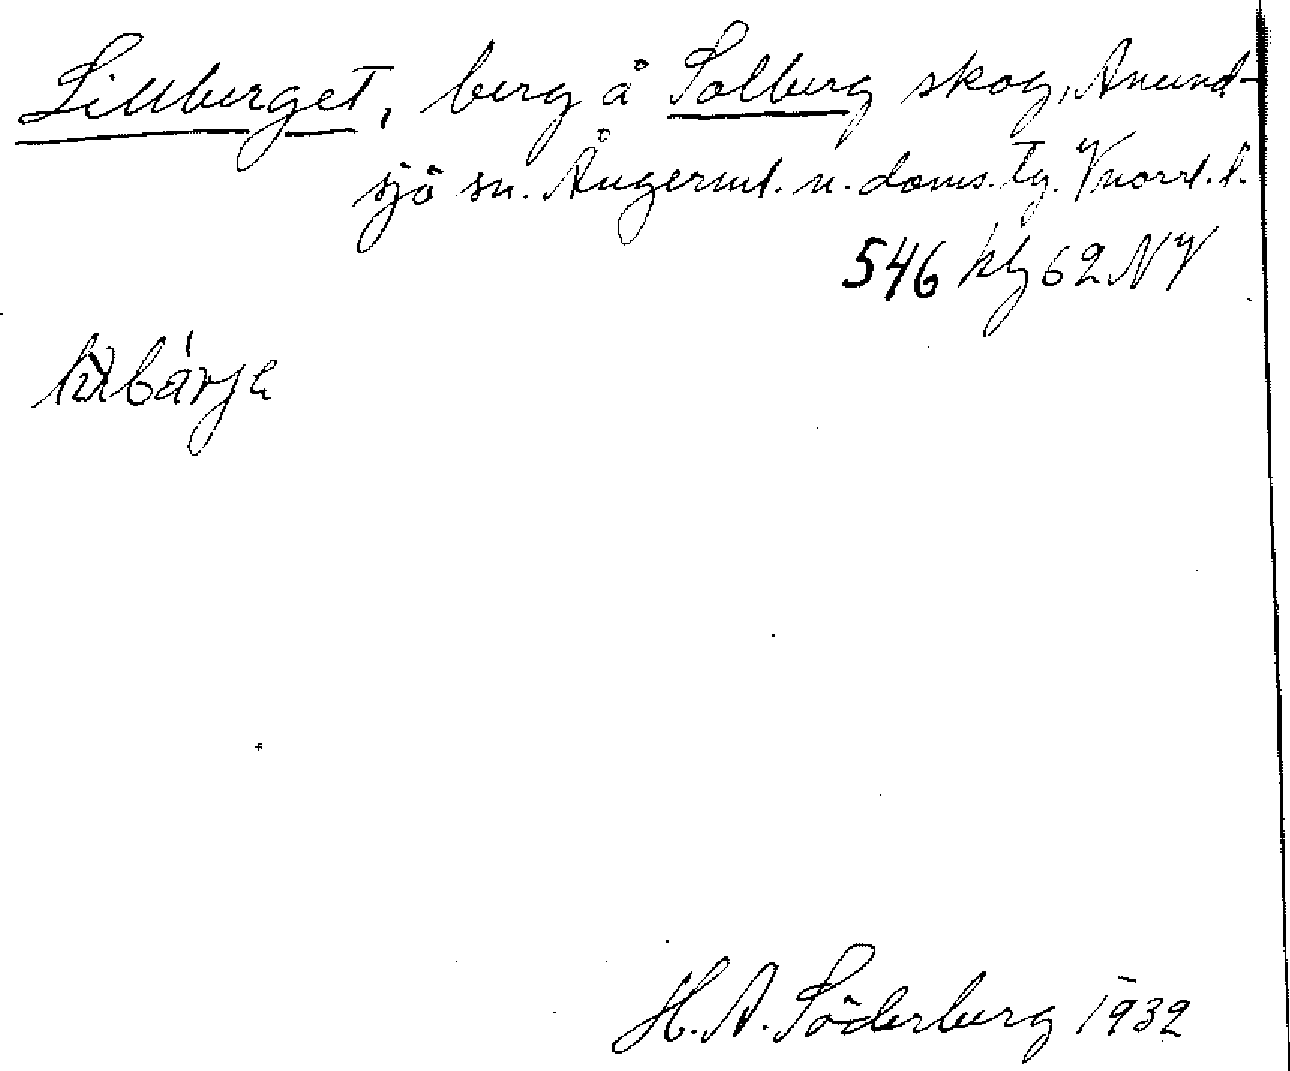 Lillberget, berg å Solberg skog, Anund-
sjö sn. Ångerml. n. doms. tg. Vnorrl. l.
546 kbl 62 NV
H. A. Söderberg 1932